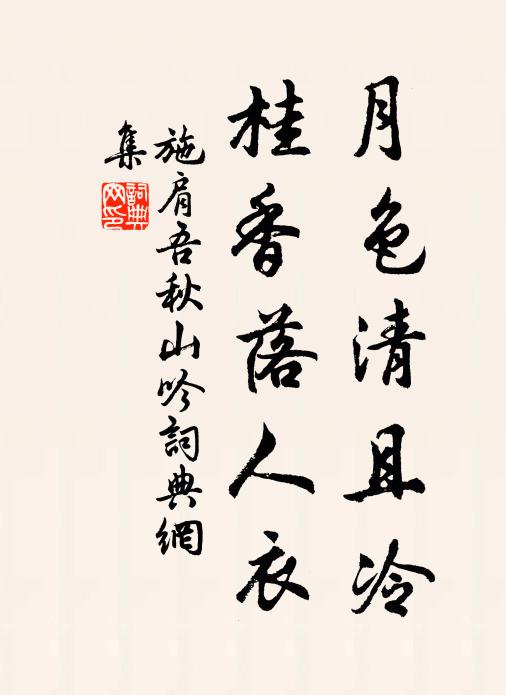 月色清且冷
桂香落人衣
施肩吾秋山吟詞典網
集
詞典网印